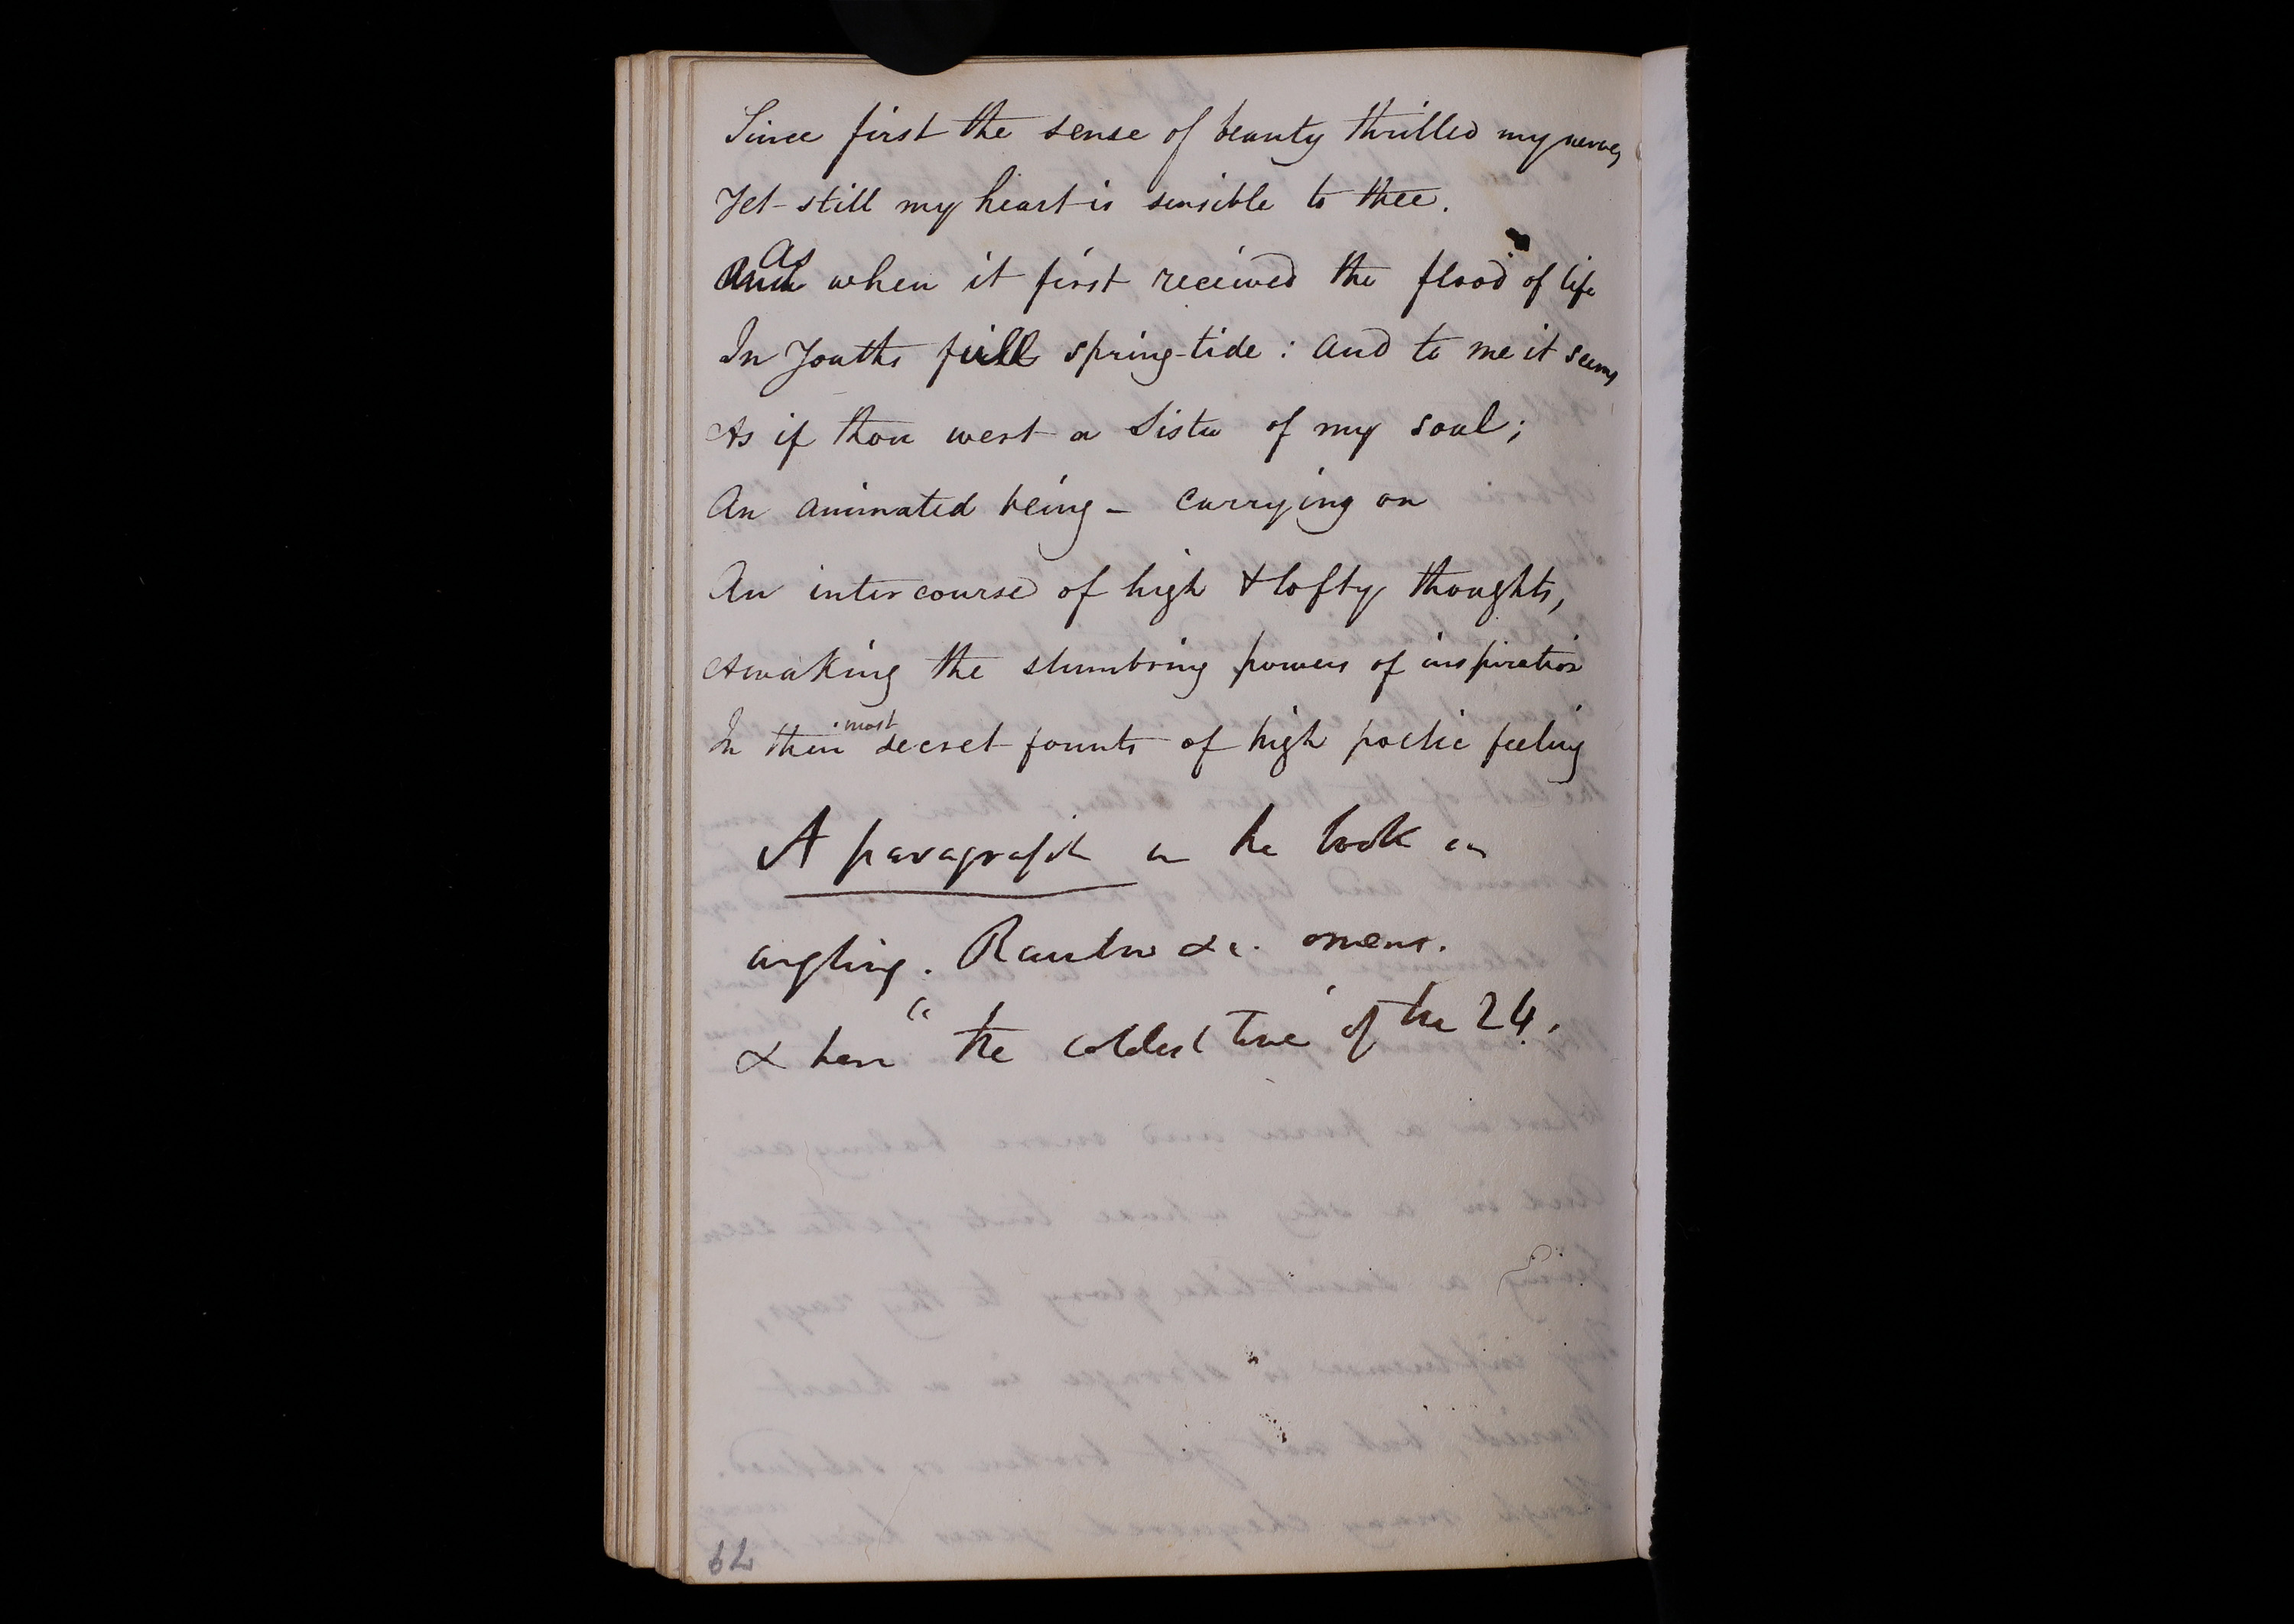 Since first the sense of beauty thrilled my nerves
Yet still my heart is sensible to thee.
As when it first received the flood of life
In Youths full spring-tide : and to me it seems
As if thou wert a Sister of my soul;
An animated being - carrying on
An intercourse of high & lofty thoughts,
Awaking the slumbring powers of inspiration
In their most secret founts of high poetic feeling
A paragraph in the book on
angling. &c. omens.
& here "the coldest time" of the 24.
62